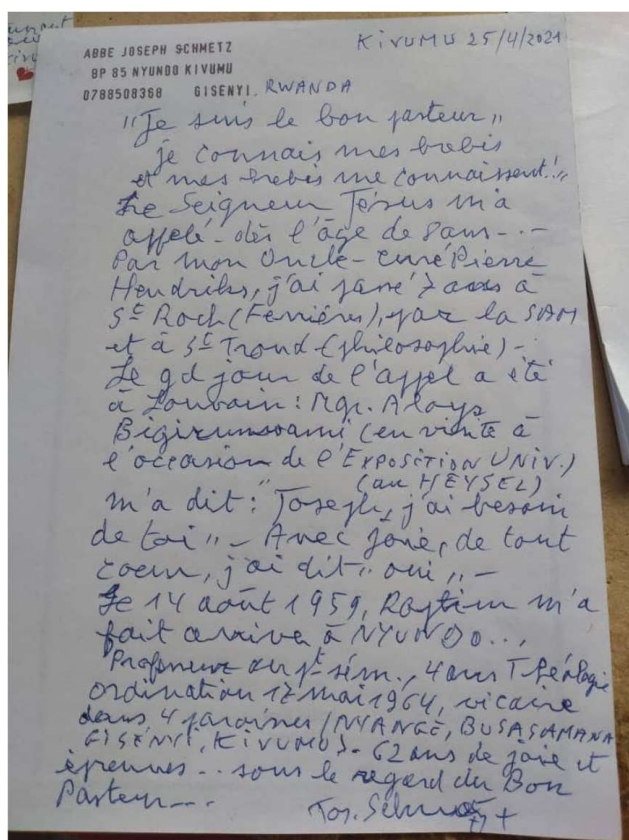 ABBE JOSEPH SCHMETZ
BP 85 NYUNDO KIVUMU
0788508368 GISENYI. RWANDA
KIVUMU 25/4/2021
"Je suis le bon pasteur"
je connais mes brebis
et mes brebis me connaissent!"
Le Seigneur Jésus m'a
appelé - dès l'âge de 8 ans - . -
Par mon Oncle - curé Pierre
Hendriks, j'ai passé 7 ans à
St Roch (Ferrières), par la SAM
et à St Trond (philosophie) -
Le gd jour de l'appel a été
à Louvain : Mgr. Aloys
Bigirumwami (en visite à
l'occasion de l'EXPOSITION UNIV.)
(au HEYSEL)
m'a dit : "Joseph, j'ai besoin
de toi" - Avec joie, de tout
coeur, j'ai dit "oui" -
Le 14 août 1959, m'a
fait arriver à NYUNDO...
Professeur au pt sém., 4 ans Théologie
ordination 17 mai 1964, vicaire
dans 4 paroisses (NYANGE, BUSASAMANA
GISENYI, KIVUMU) - 62 ans de joie et
épreuves .. sous le regard du Bon
Pasteur ---
Jos. Schmetz +